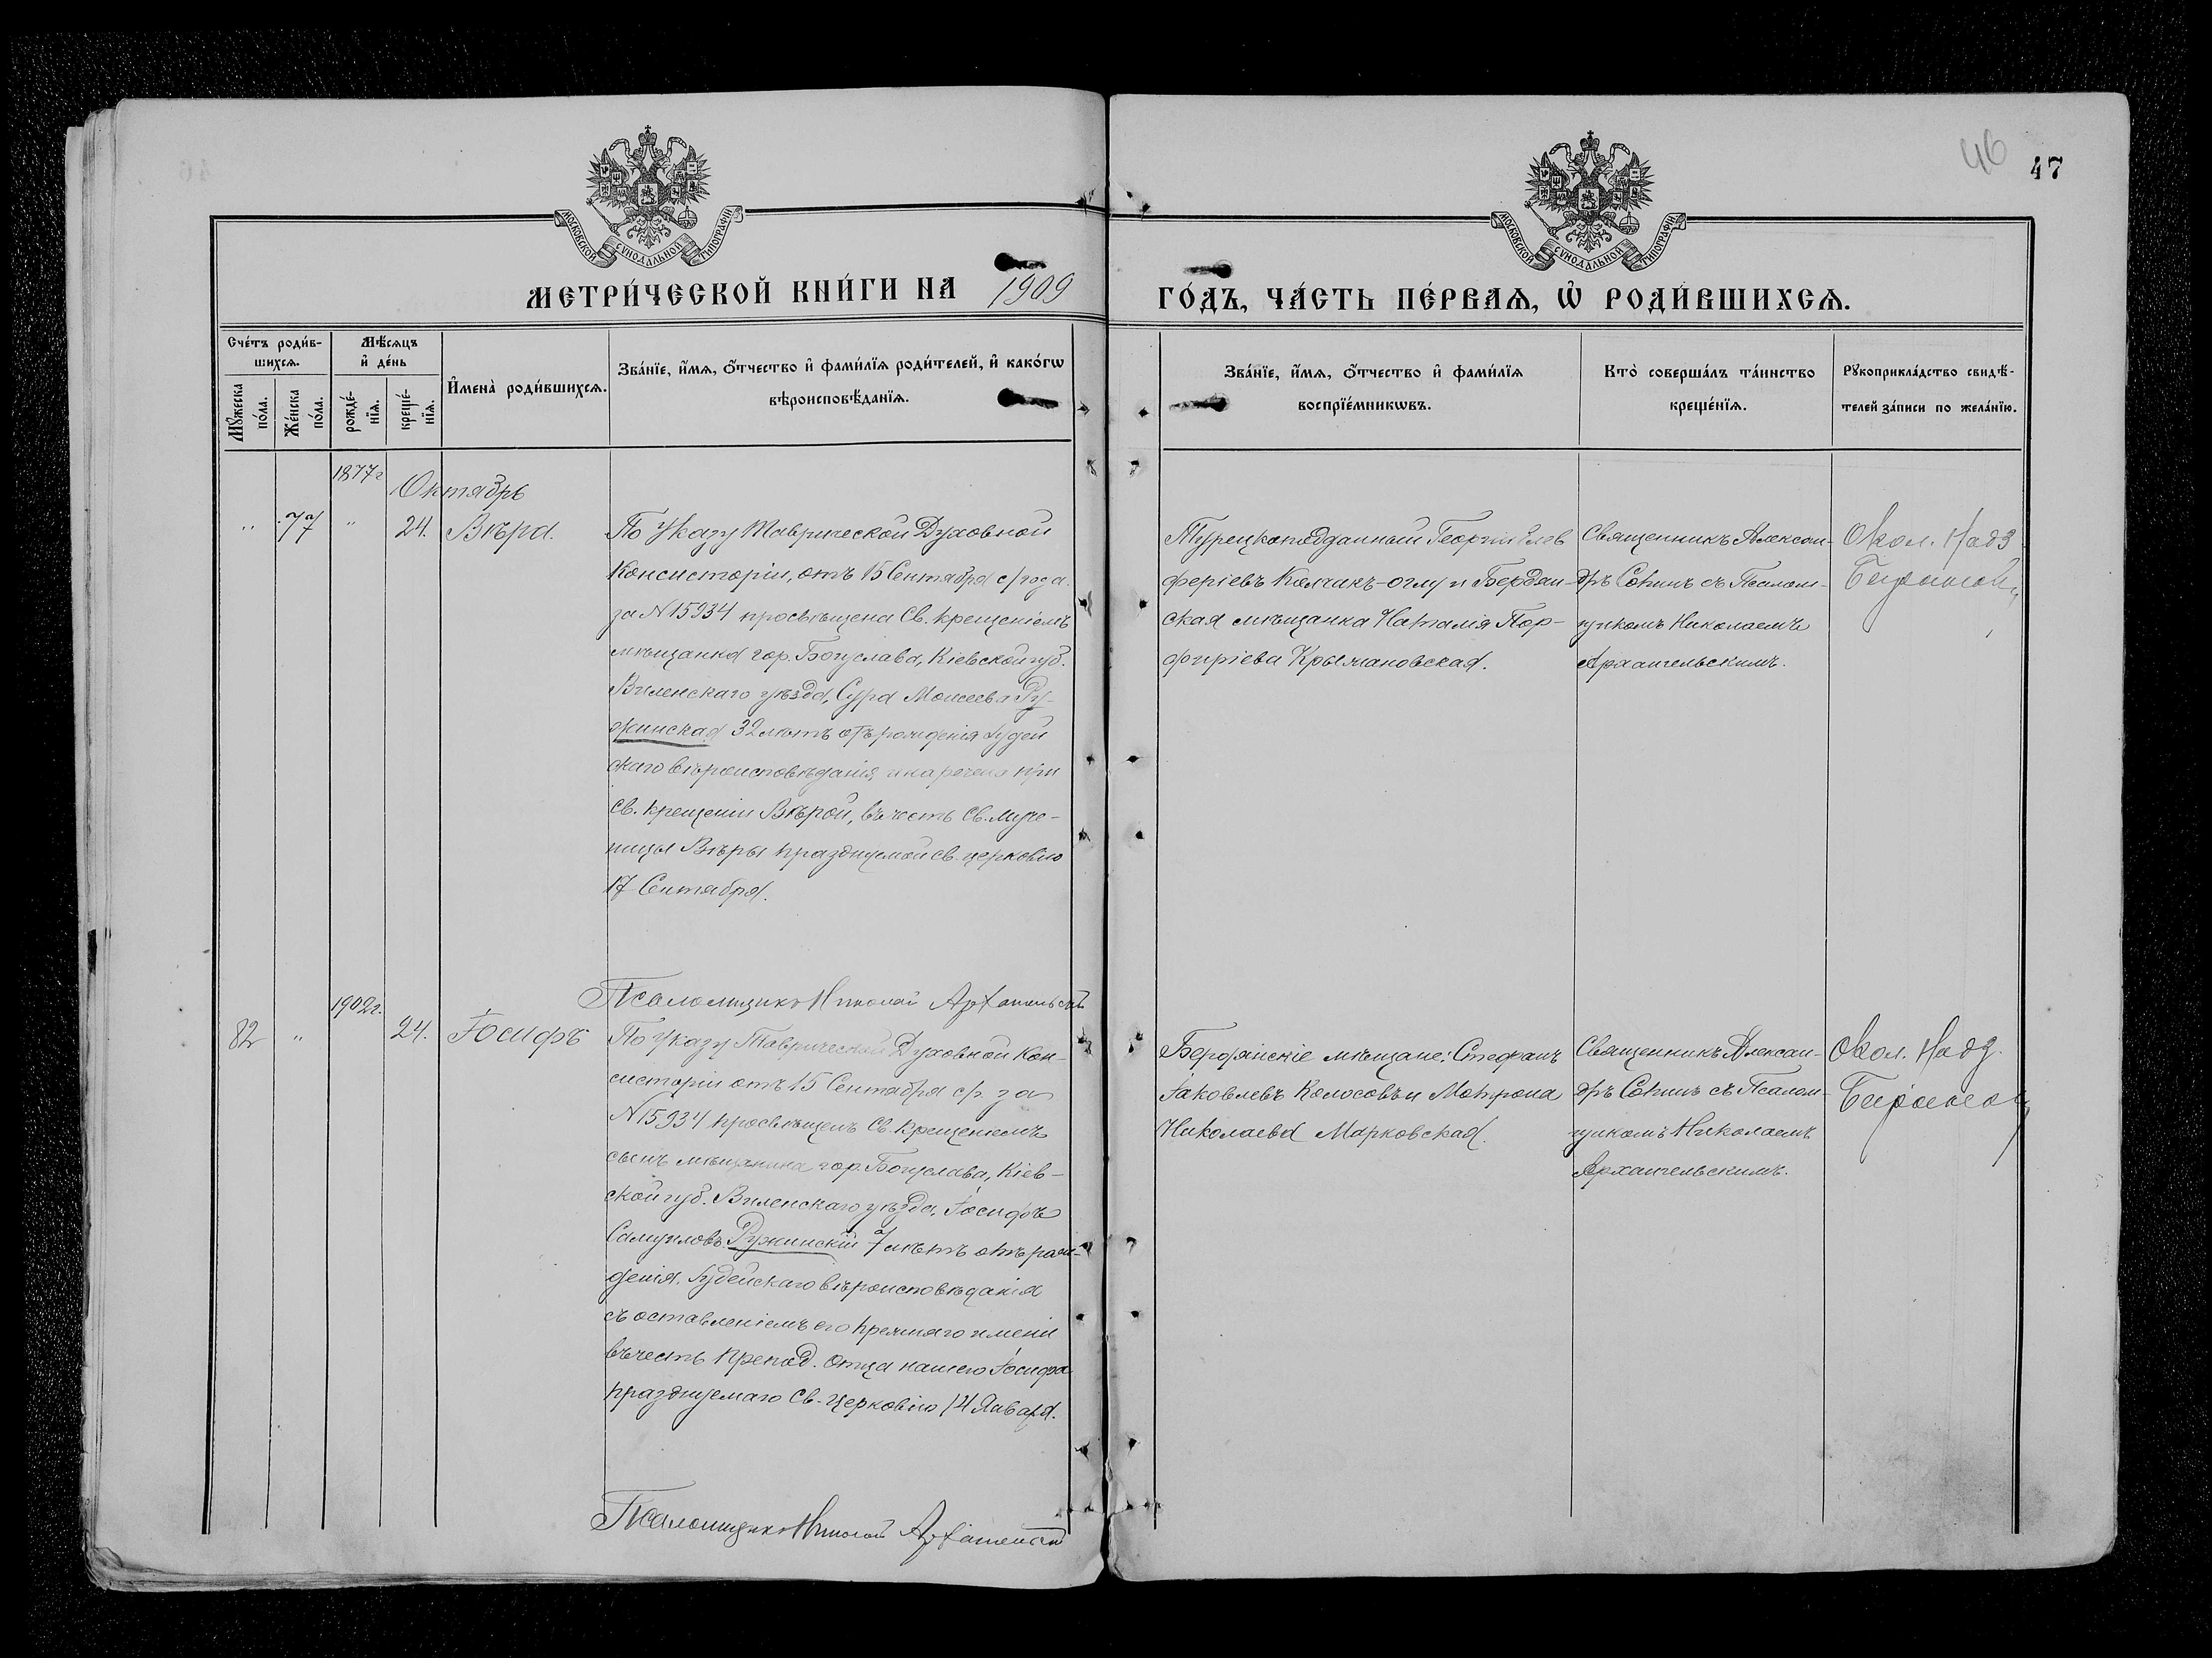 46
47
МОСКОВСКОЙ СѴНОДАЛЬНОЙ ТИПОГРАФІИ
МОСКОВСКОЙ СѴНОДАЛЬНОЙ ТИПОГРАФІИ
МЕТРИ́ЧЕСКОЙ КНИ́ГИ НА 1909
ГО́ДЪ, ЧА́СТЬ ПЕ́РВАѦ, Ѡ҆ РОДИ́ВШИХСѦ.
Сче́тъ роди́в-
шихсѧ.
Мꙋ́жеска
по́ла.
Же́нска
по́ла.
Мѣ́сѧцъ
и҆ де́нь
рожде́-
нїѧ.
креще́-
нїѧ.
И҆мена̀ роди́вшихсѧ.
Зва́нїе, и҆́мѧ, ѻ҆́тчество и҆ фами́лїѧ роди́телей, и҆ како́гѡ
вѣроисповѣ́данїѧ.
Зва́нїе, и҆́мѧ, ѻ҆́тчество и҆ фами́лїѧ
воспрїе́мникѡвъ.
Кто̀ соверша́лъ та́инство
креще́нїѧ.
Рꙋкоприкла́дство свидѣ́-
телей за́писи по жела́нїю.
1877 г
Октябрь
" 77 " 24. Вѣра.
По Указу Таврической Духовной
Консисторіи, отъ 15 Сентября с/года
за N 15934 просвѣщена Св. крещеніемъ
мѣщанка гор. Богуслава, Кіевской губ.
Виленскаго уѣзда, Сура Моисеева Ру-
жинская 32 лѣтъ отъ рожденія Іудей
скаго вѣроисповѣданія, и наречена при
Св. крещеніи Вѣрой, въ честь Св. Муче-
ницы Вѣры празднуемой св. церковію
17 Сентября.
Псаломщикъ Николай Архангельскій
Турецкоподданный Георгій
феріевъ Колчакъ-оглу и Бердян-
ская мѣщанка Наталія Пор-
фиріева Крыжановская.
Священникъ Алексан-
дръ Сокинъ съ Псалом-
щикомъ Николаемъ
Архангельскимъ.
Окол. Надз
1902 г.
82 " 24. Іосифъ
По Указу Таврической Духовной Кон-
систоріи отъ 15 Сентября с/г. за
N 15934 просвѣщенъ Св. крещеніемъ
сынъ мѣщанина гор. Богуслава, Кіев-
ской губ. Виленскаго уѣзда, Іосифъ
Самуиловъ Ружинскій 7 лѣтъ отъ рож-
денія. Іудейскаго вѣроисповѣданія
съ оставленіемъ его прежняго имени
въ честь Препод. Отца нашего Іосифа
празднуемаго Св. Церковію 14 Января.
Псаломщикъ Николай Архангельскій
Бердянскіе мѣщане: Стефанъ
Іаковлевъ Колосовъ и Матрона
Николаева Марковская.
Священникъ Алексан-
дръ Сокинъ съ Псалом-
щикомъ Николаемъ
Архангельскимъ.
Окол. Надз.